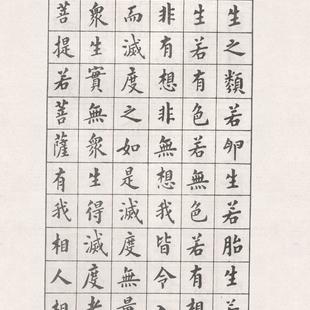 生之類若卵生若胎生若
生若有色若無色若有想
非有想非無想我皆令
而滅度之如是滅度無量
衆生實無衆生得滅度者
菩提若菩薩有我相人相